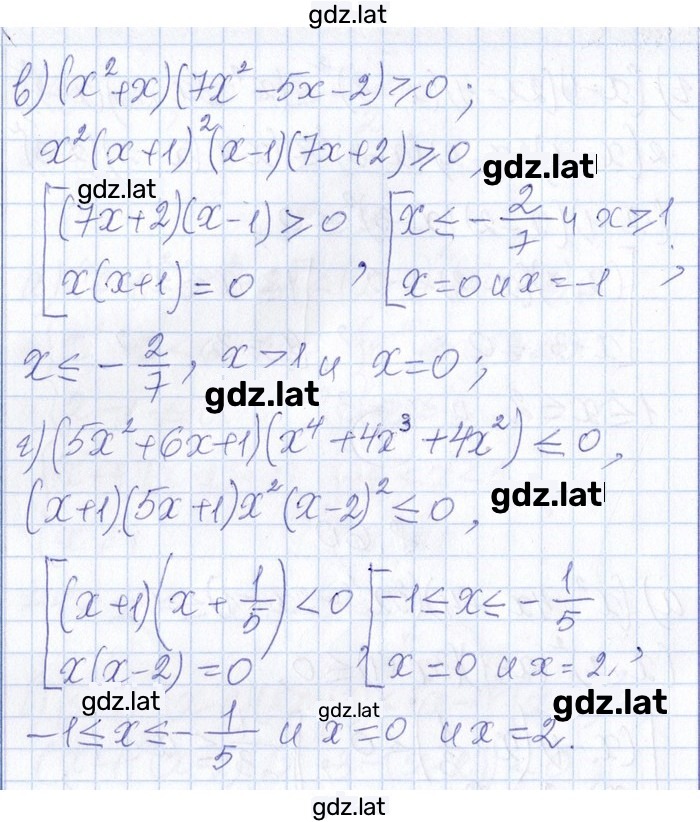 gdz.lat
в) (x²+x)(7x²-5x-2)⩾0;
x²(x+1)²(x-1)(7x+2)⩾0, gdz.lat
gdz.lat
[(7x+2)(x-1)⩾0 [x≤-2/7 и x⩾1
x(x+1)=0 , x=0 и x=-1 ;
x≤-2/7, x>1 и x=0;
gdz.lat
г) (5x²+6x+1)(x⁴+4x³+4x²)≤0,
(x+1)(5x+1)x²(x-2)²≤0, gdz.lat
[(x+1)(x+1/5)<0 [-1≤x≤-1/5
x(x-2)=0 , x=0 и x=2,;
gdz.lat gdz.lat gdz.lat
-1≤x≤-1/5 и x=0 и x=2.
gdz.lat